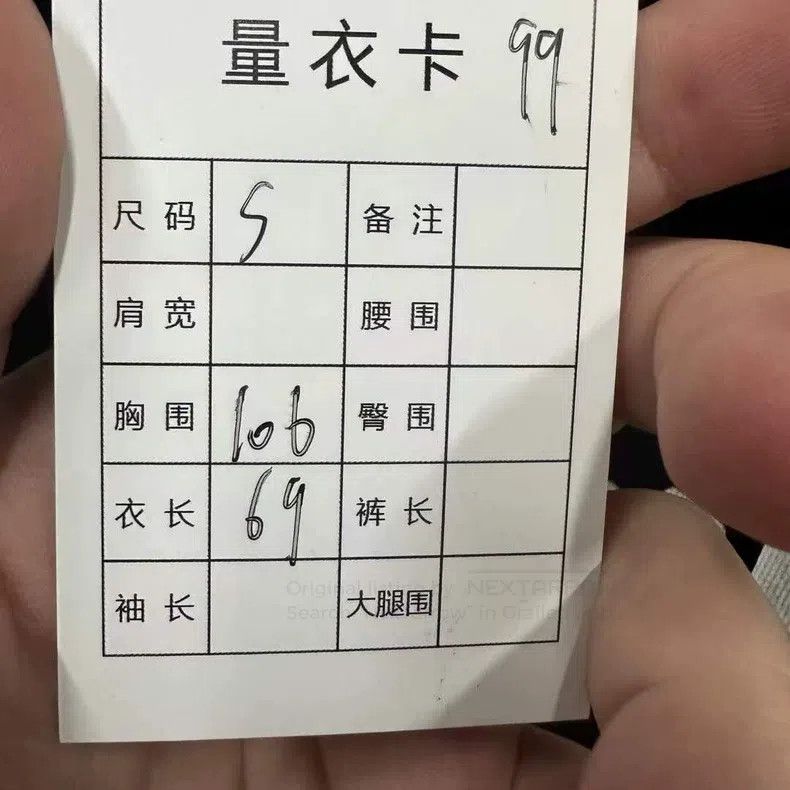 量衣卡 99
尺码 S 备注
肩宽 腰围
胸围 106 臀围
衣长 69 裤长
袖长 大腿围
Original listing by NEXTPR
Search in